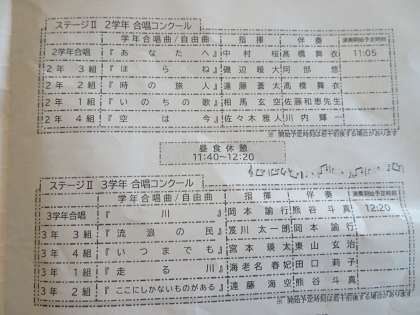 ステージⅡ 2学年 合唱コンクール
学年合唱曲/自由曲 指揮 伴奏 演奏開始予定時刻
2学年合唱 『あなたへ』 中村桜 髙橋舞衣 11:05
2年3組 『ほらね』 磯辺暖大 阿部悠
2年2組 『時の旅人』 遠藤蒼太 髙橋舞衣
2年1組 『いのちの歌』 相馬玄空 佐藤和恵先生
2年4組 『空は今』 佐々木雅人 川内輝一
昼食休憩
11:40~12:20
ステージⅡ 3学年 合唱コンクール
学年合唱曲/自由曲 指揮 伴奏 演奏開始予定時刻
3学年合唱 『川』 岡本諭行 熊谷斗真 12:20
3年3組 『流浪の民』 及川太一朗 岡本諭行
3年4組 『いつまでも』 宮本瑛太 東山玄治
3年1組 『走る川』 海老名春妃 田口莉子
3年2組 『ここにしかないものがある』 遠藤海空 熊谷斗真